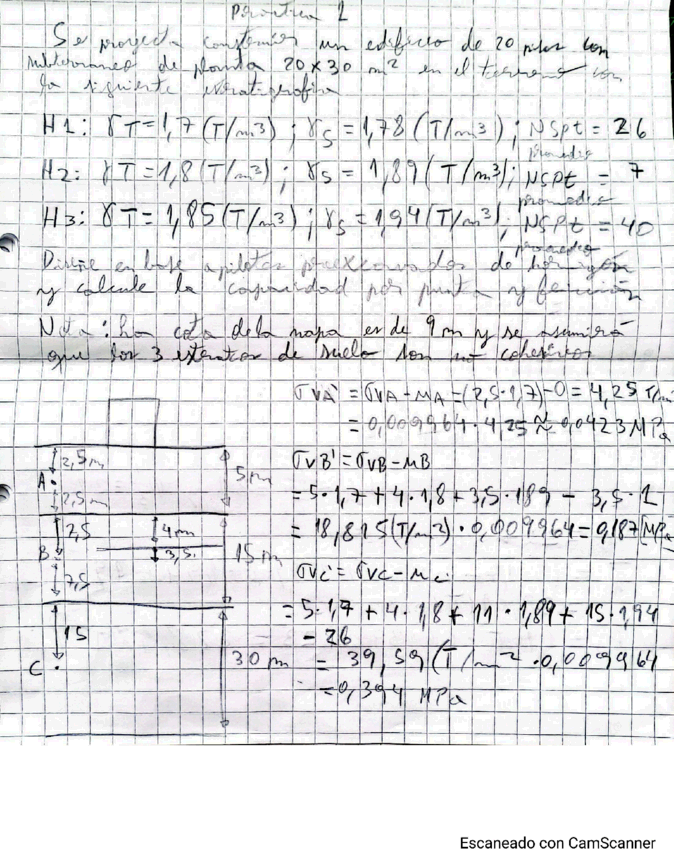 Práctica 2
Se proyecta construir un edificio de 20 pisos con
subterraneo de planta 20 x 30 m² en el terreno con
la siguiente estratigrafia
H1: γT = 1,7 (T/m³) ; γs = 1,78 (T/m³) ; NSpt = 26
promedio
H2: γT = 1,8 (T/m³) ; γs = 1,89 (T/m³) ; NSPt = 7
promedio
H3: γT = 1,85 (T/m³) ; γs = 1,94 (T/m³) ; NSPt = 40
promedio
Diseñe en base a pilotes preexcavados de hormigón
y calcule la capacidad por punta y fricción
Nota: La cota de la napa es de 9 m y se asumirá
que los 3 estratos de suelo son no cohesivos
σVA' = σVA - μA = (2,5·1,7) - 0 = 4,25 T/m
= 0,009964 · 4,25 ≈ 0,0423 MPa
σVB' = σVB - μB
= 5·1,7 + 4·1,8 + 3,5·189 - 3,5·1
= 18,815 (T/m²) · 0,009964 = 0,187 [MPa
σVC' = σVC - μC
= 5·1,7 + 4·1,8 + 11·1,89 + 15·1,94
- 26
= 39,59 (T/m² · 0,009964
= 0,394 MPa
2,5m
A
2,5m
5 m
2,5
4m
B
3,5
15m
7,5
15
C
30 m
Escaneado con CamScanner